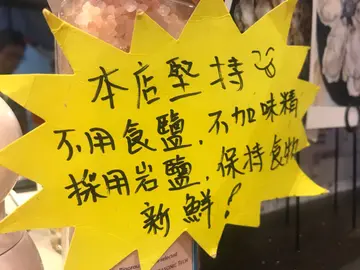 本店堅持
不用食鹽.不加味精
採用岩鹽.保持食物
新鮮!